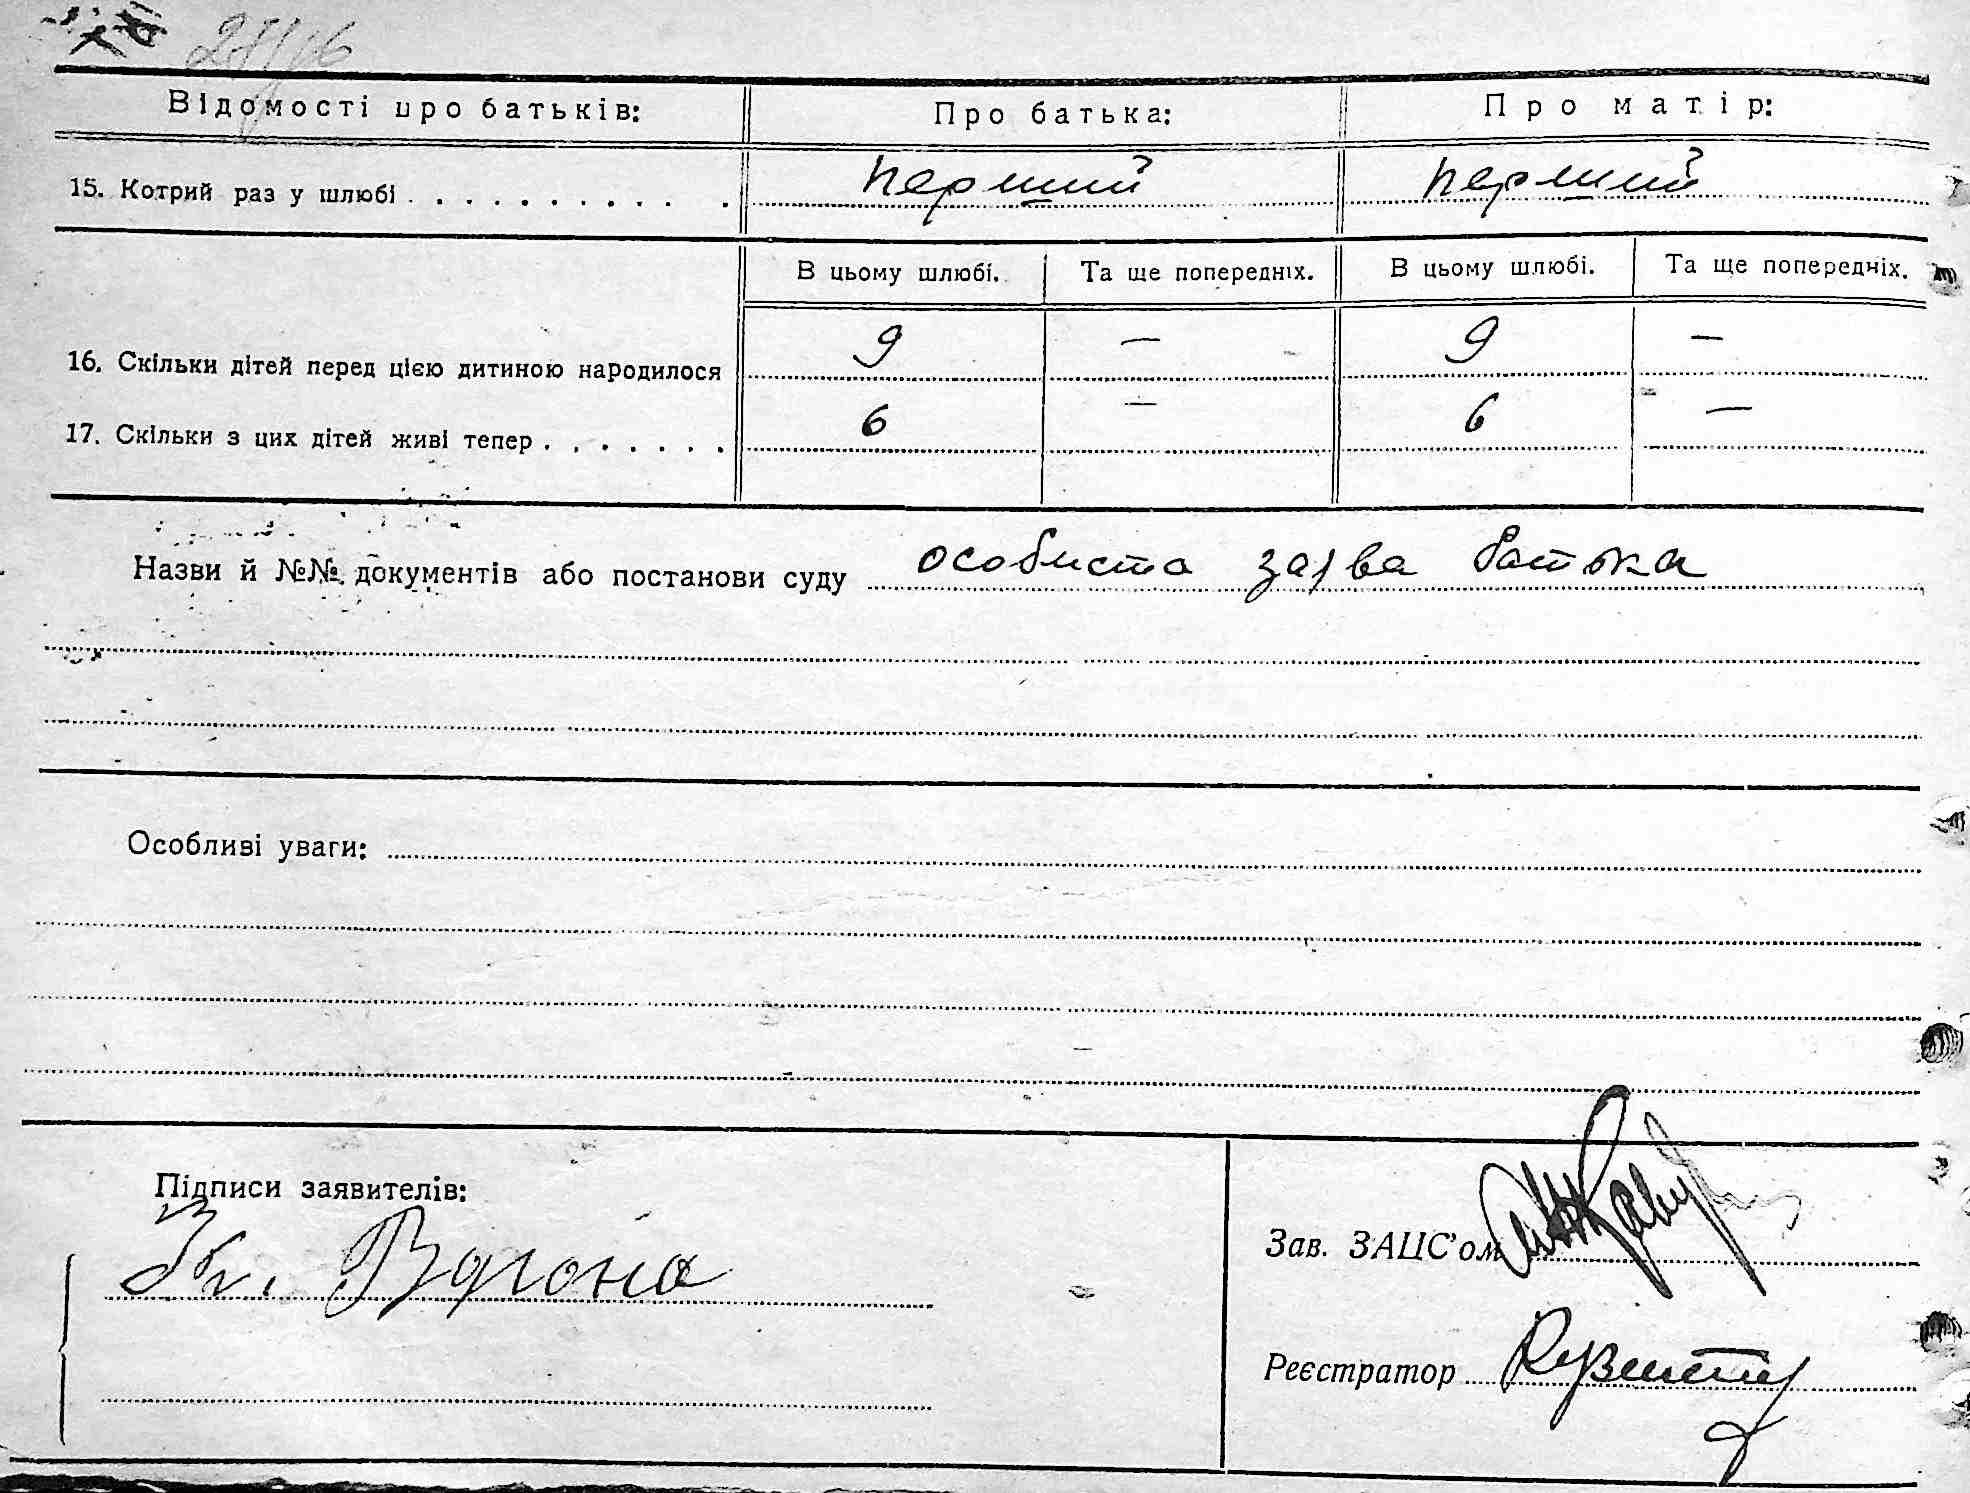 Відомості про батьків: Про батька: Про матір:
15. Котрий раз у шлюбі . . . . . . . . . . . перший перший
В цьому шлюбі. Та ще попередніх. В цьому шлюбі. Та ще попередніх.
16. Скільки дітей перед цією дитиною народилося 9 — 9 —
17. Скільки з цих дітей живі тепер . . . . . . . 6 — 6 —
Назви й №№ документів або постанови суду особиста заява батька
Особливі уваги:
Підписи заявителів:
Ворона
Зав. ЗАЦС'ом
Реєстратор